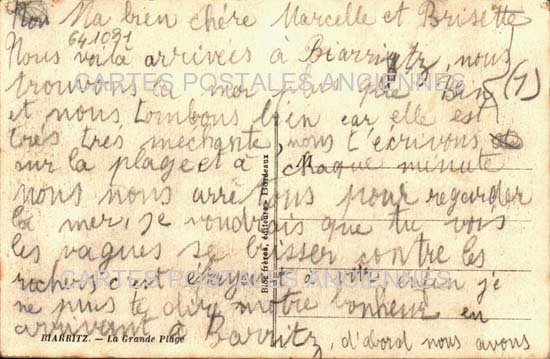 Ma bien chère Marcelle et Brisette
641091
Nous voilà arrivées à Biarritz, nous
trouvons la mer plus que (1)
CARTES POSTALES ANCIENNES
et nous tombons bien car elle est
très très mechante, nous t'écrivons
sur la plage et à chaque minute
nous nous arrêtons pour regarder
la mer, je voudrais que tu vois
les vagues se briser contre les
rochers c'est enfin je
CARTES POSTALES ANCIENNES
ne puis te dire notre bonheur en
arrivant à Barritz, d'abord nous avons
BIARRITZ. — La Grande Plage
Bloc frères, éditeurs - Bordeaux